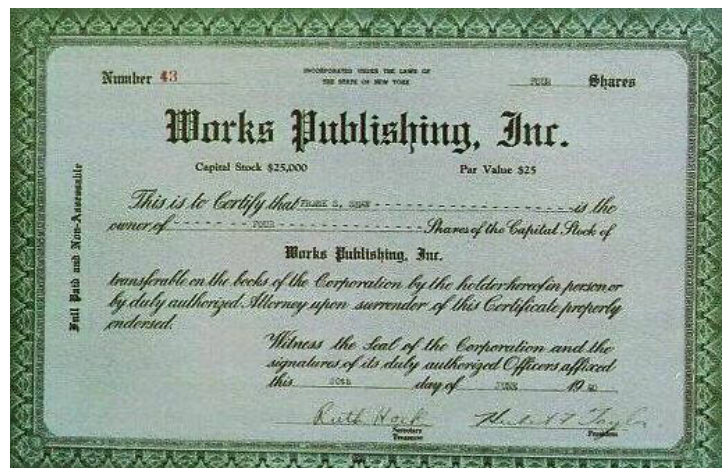 Number 43
INCORPORATED UNDER THE LAWS OF
THE STATE OF NEW YORK
FOUR Shares
Works Publishing, Inc.
Capital Stock $25,000 Par Value $25
Full Paid and Non-Assessable
This is to Certify that FRANK S. SHAW is the
owner of FOUR Shares of the Capital Stock of
Works Publishing, Inc.
transferable on the books of the Corporation by the holder hereof in person or
by duly authorized Attorney upon surrender of this Certificate properly
endorsed.
Witness the Seal of the Corporation and the
signatures of its duly authorized Officers affixed
this 20th day of JUNE 1940
Ruth Hock
Secretary
Treasurer
President